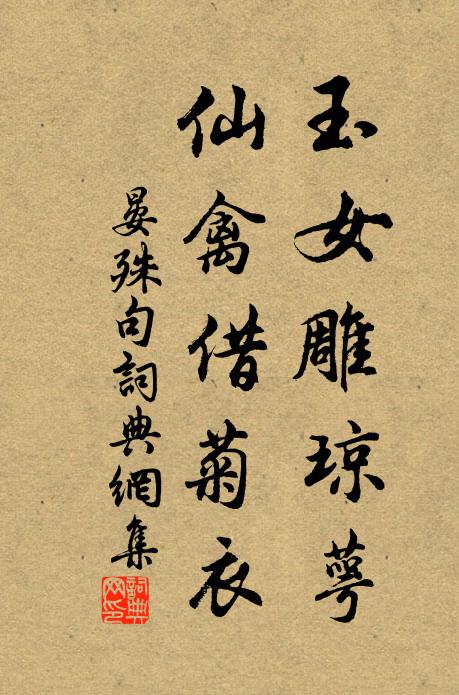 玉女雕琼萼
仙禽借菊衣
晏殊句詞典網集
詞典网印